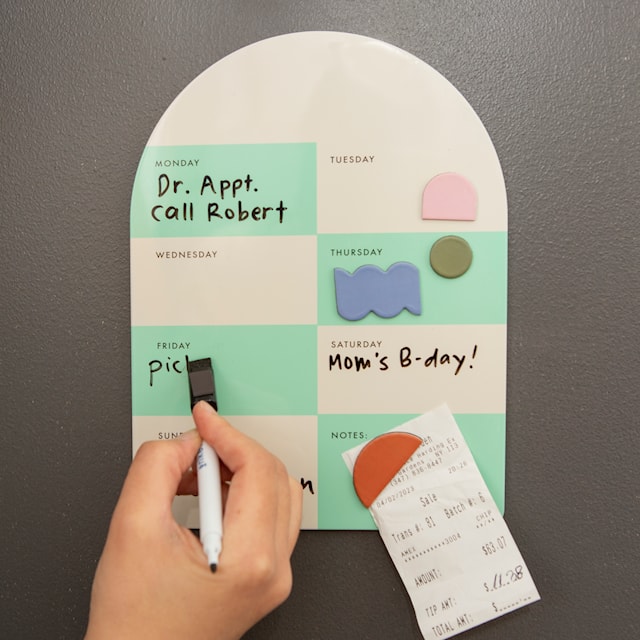 MONDAY
Dr. Appt.
Call Robert
TUESDAY
WEDNESDAY
THURSDAY
FRIDAY
pic
SATURDAY
Mom's B-day!
SUN
NOTES:
(347) 836-0447
04/02/2023 20:26
Sale
Trans #: 81 Batch #: 6
AMEX CHIP
************3004 **/**
AMOUNT: $63.07
TIP AMT: $
TOTAL AMT: $